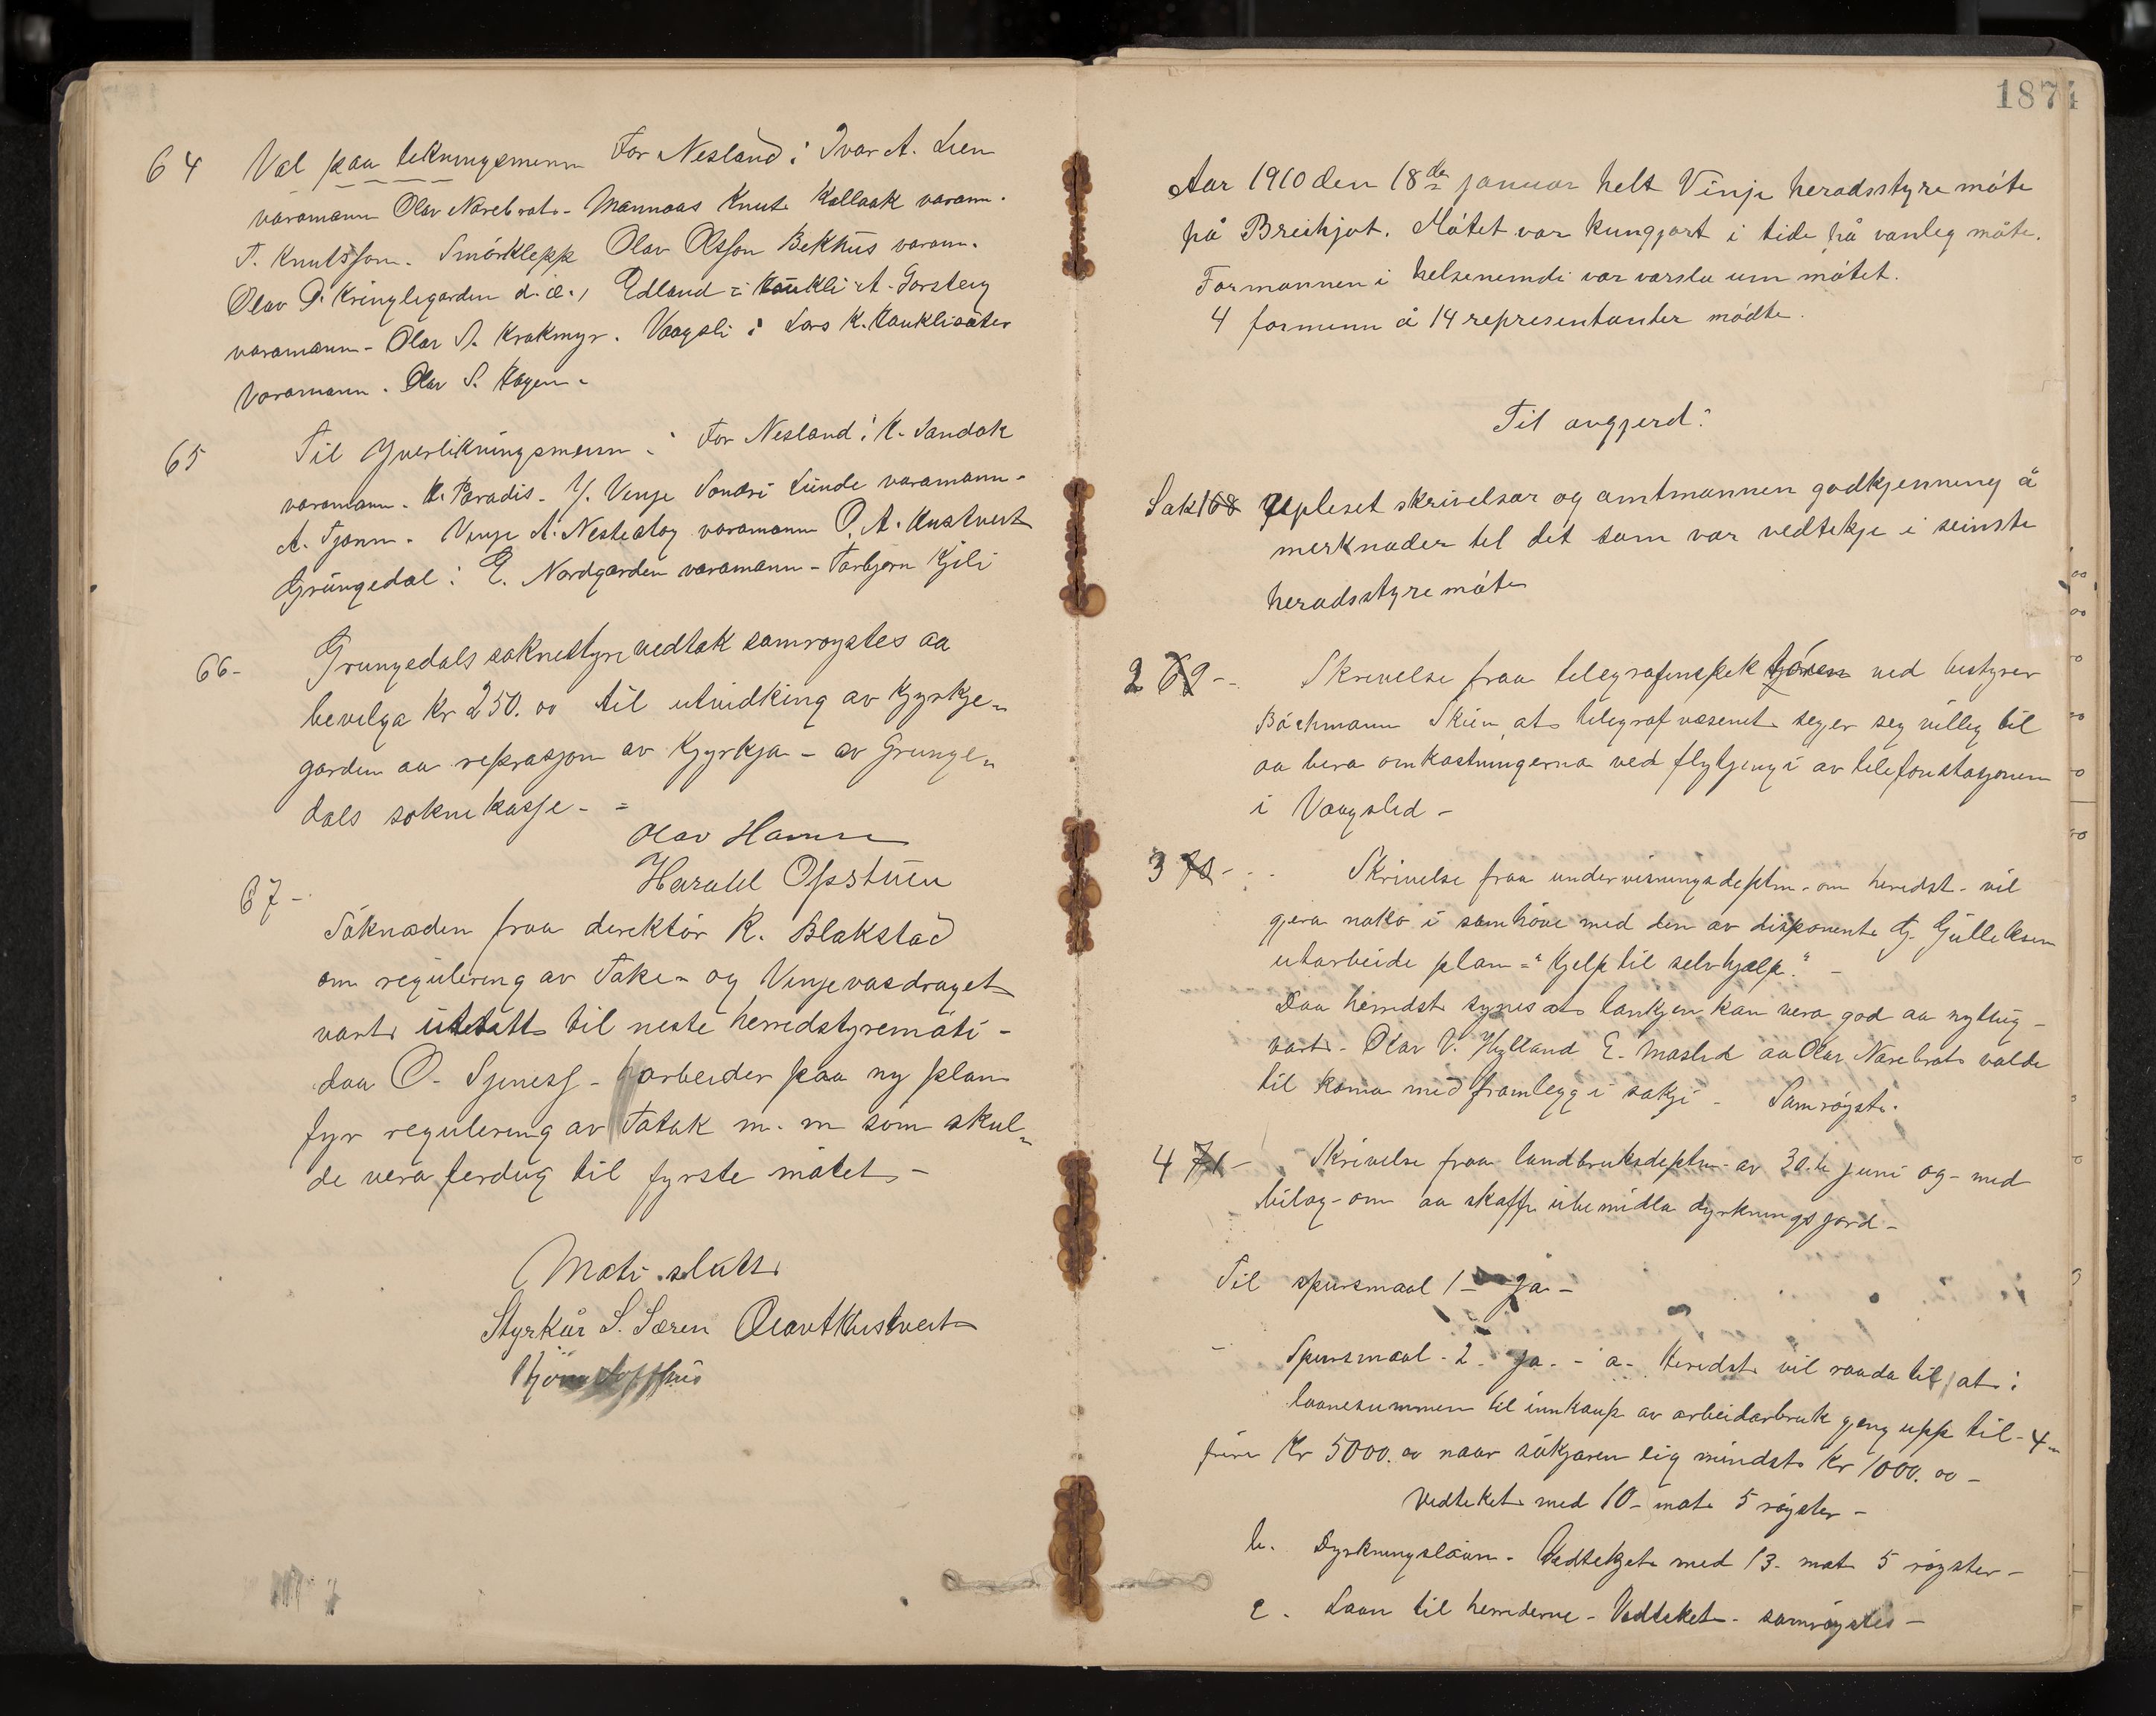 64 Val paa likningsmenn For Nesland: Ivar A. Lien
varamann Olav Narebrots - Mannaas Knut Kallaak varam.
T. Knutsson. Smörklepp Olav Olsson Bekhus varam.
Olav D. Kringlegarden d. æ., Edland: Haukli A. Gorsteig
varamann - Olav S. Krokmyr. Vaagsli: Lars K. Hauklisæter
Varamann. Olav S. Hagen.
65 Til Yverlikningsmenn: For Nesland: K. Sandok
varamann. K. Paradis. Y. Venje Sondri Lunde varamann -
A. Tjonn. Vinje A. Nestestog varamann O. A. Kustveit
Grungedal: E. Nordgarden varamann - Tarbjorn Kjili
66- Grungedals soknestyre vedtok samroystes aa
bevilga Kr 250.00 til utvidking av Kyrkje-
garden aa reprasjon av Kyrkja - av Grunge-
dals soknekasse. =
Olav Hamre
Harald Opstuen
67- Söknaden fraa direktör R. Blakstad
om regulering av Toke- og Vinjevasdraget
vart utsett til neste herredstyremöti -
daa O. Sjiness - arbeider paa ny plan
fyr regulering av Totak m. m som skul-
de vera ferdug til fyrste mötet -
Möti slutt.
Styrkår S. Særen Olav A Kustveit
187
Aar 1910 den 18de januar helt Vinje heradsstyre möte
på Breihjot. Mötet var kungjort i tide på vanleg måte.
Formannen i helsenemdi var varsla um mötet.
4 formenn å 14 representanter mödte.
Til avgjerd:
Sak 168 Upleset skrivelsar og amtmannen godkjenning å
merknader til det som var vedtekje i seinste
heradsstyremöte
2 69 - Skrivelse fraa telegrafinspektören ved bestyrer
Bachmann Skien, at telegrafvæsenet segjer seg villig til
aa bera omkostningerna ved flytjingi av telefonstasjonen
i Vaagslid -
3 70 - Skrivelse fraa undervisningsdeptm. om heredst. vil
gjera noko i samhöve med den av disponent G. Gulleksen
utarbeide plan = "Hjelp til selvhjælp." -
Daa herredst. synes at tankjen kan vera god aa nyttug -
vart. Olav V. Hylland E. Maslid aa Olav Narebrots valde
til koma med framlegg i sakji - Samröyst.
4 71 - Skrivelse fraa landbruksdeptm. av 30.te juni og - med
bilag - om aa skaffe ubemidla dyrkningsjord -
Til spursmaal 1 - Ja -
- Spursmaal - 2 - Ja. - a - Heredst. vil raada til at:
laanesummen til innkaup av arbeidarbruk gjeng upp til - 4 -
fire Kr 5000.00 naar sökjaren eig mindst Kr 1000.00 -
Vedteket med 10 - mot 5 röyster -
b. Dyrkningslaan - Vedtekjet med 13. mot 5 röyster -
c. Laan til herrederne - Vedteket - samröystes -